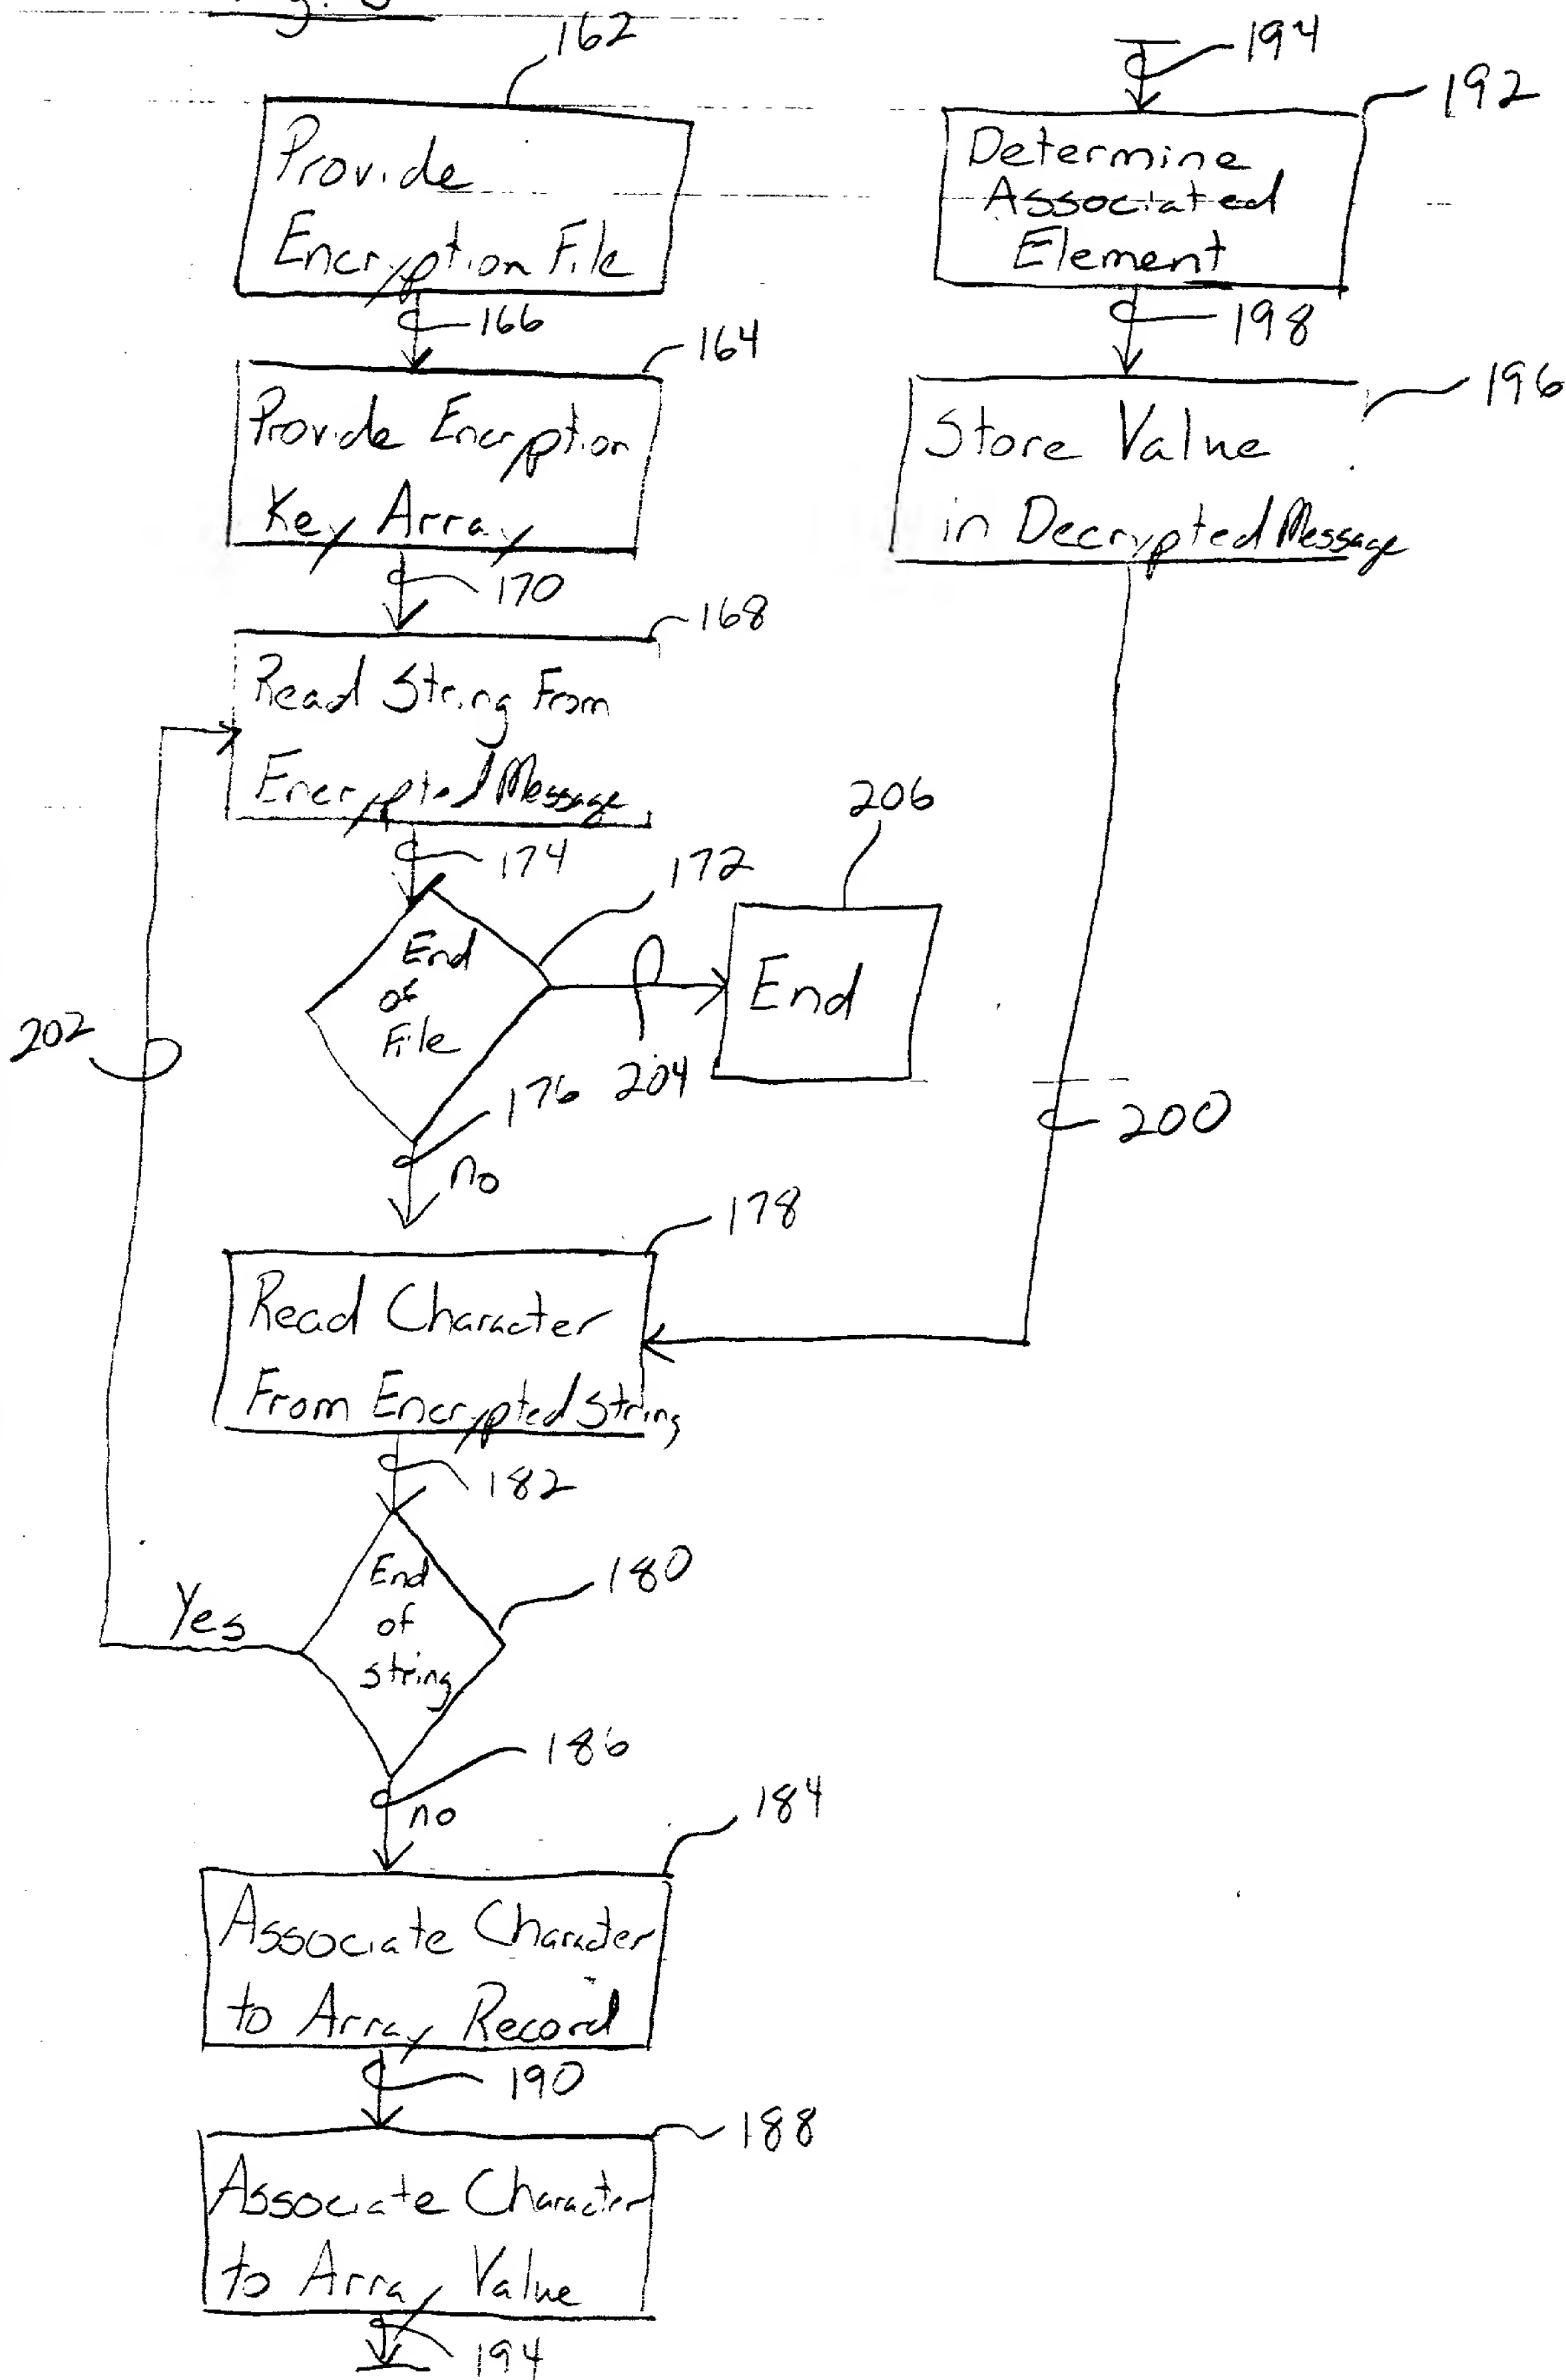 162
Provide
Encryption File
166
164
Provide Encryption
Key Array
170
168
Read String From
Encrypted Message
174
172
End
of
File
204
206
End
176
no
202
178
Read Character
From Encrypted String
182
180
End
of
string
Yes
186
no
184
Associate Character
to Array Record
190
188
Associate Character
to Array Value
194
194
192
Determine
Associated
Element
198
196
Store Value
in Decrypted Message
200